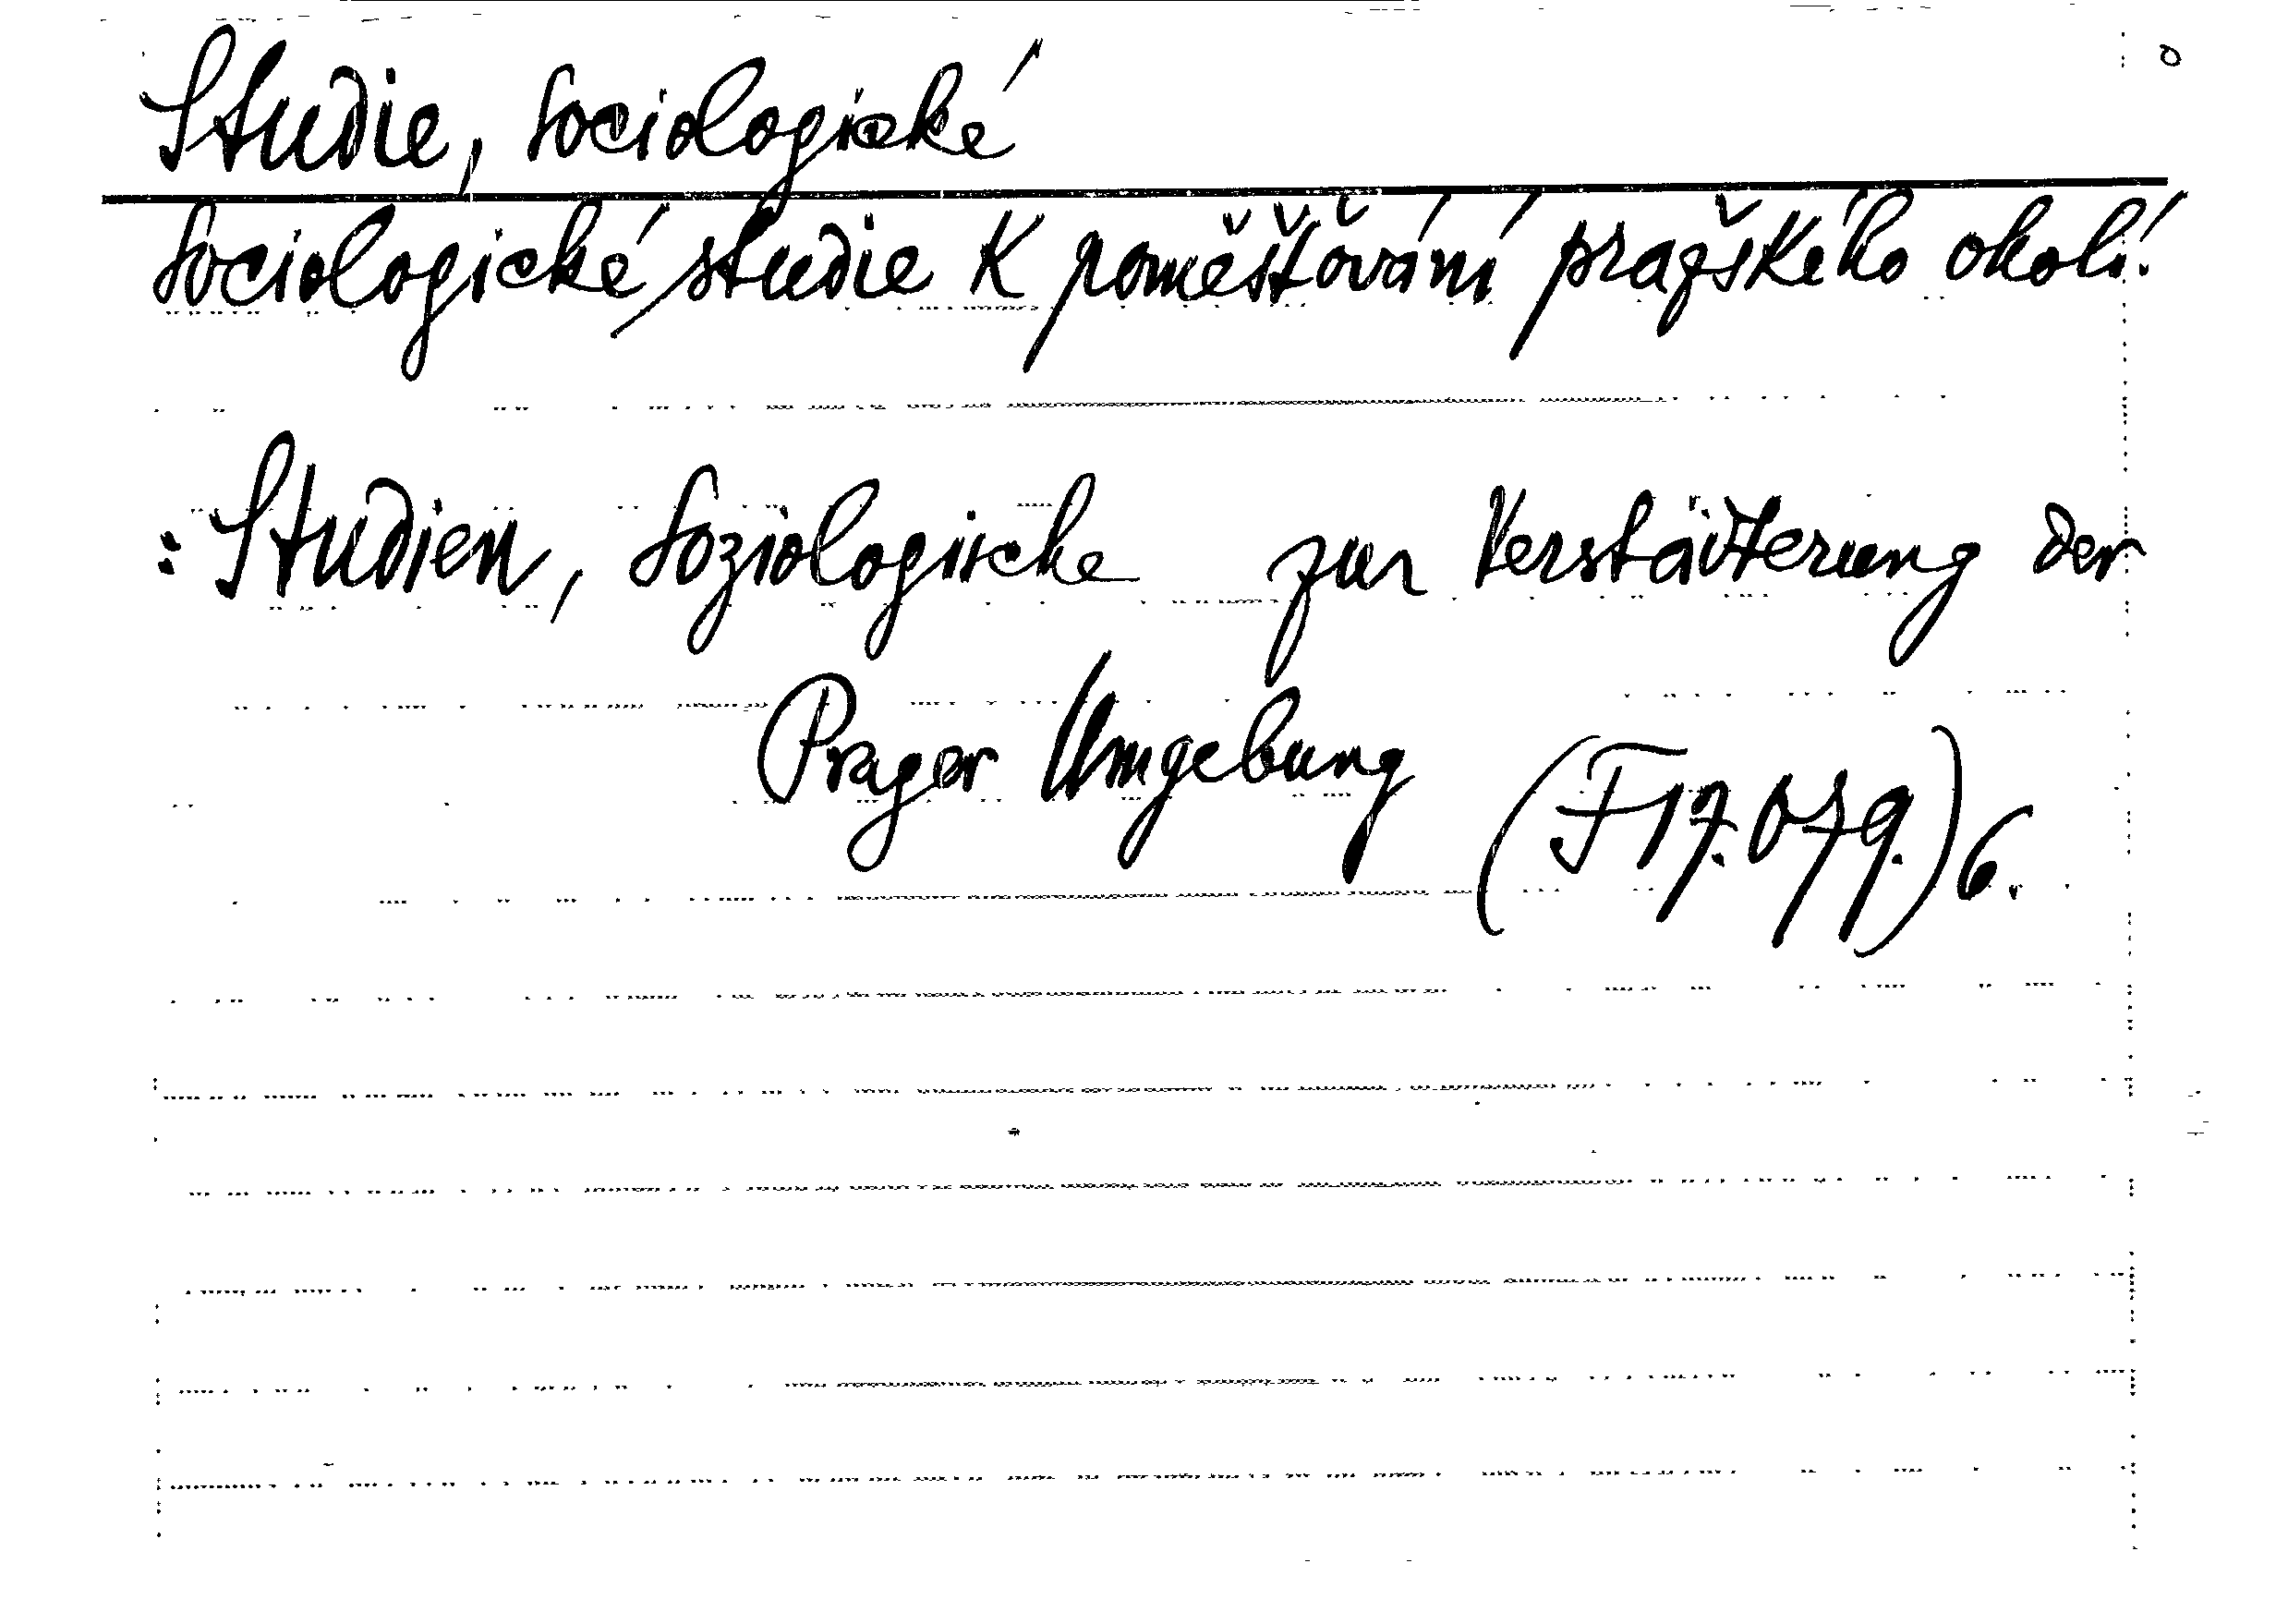 Studie, sociologické
Sociologické studie k poměšťování pražského okolí.
: Studien, Soziologische zur Verstädterung der
Prager Umgebung
(F 17.079.) 6.